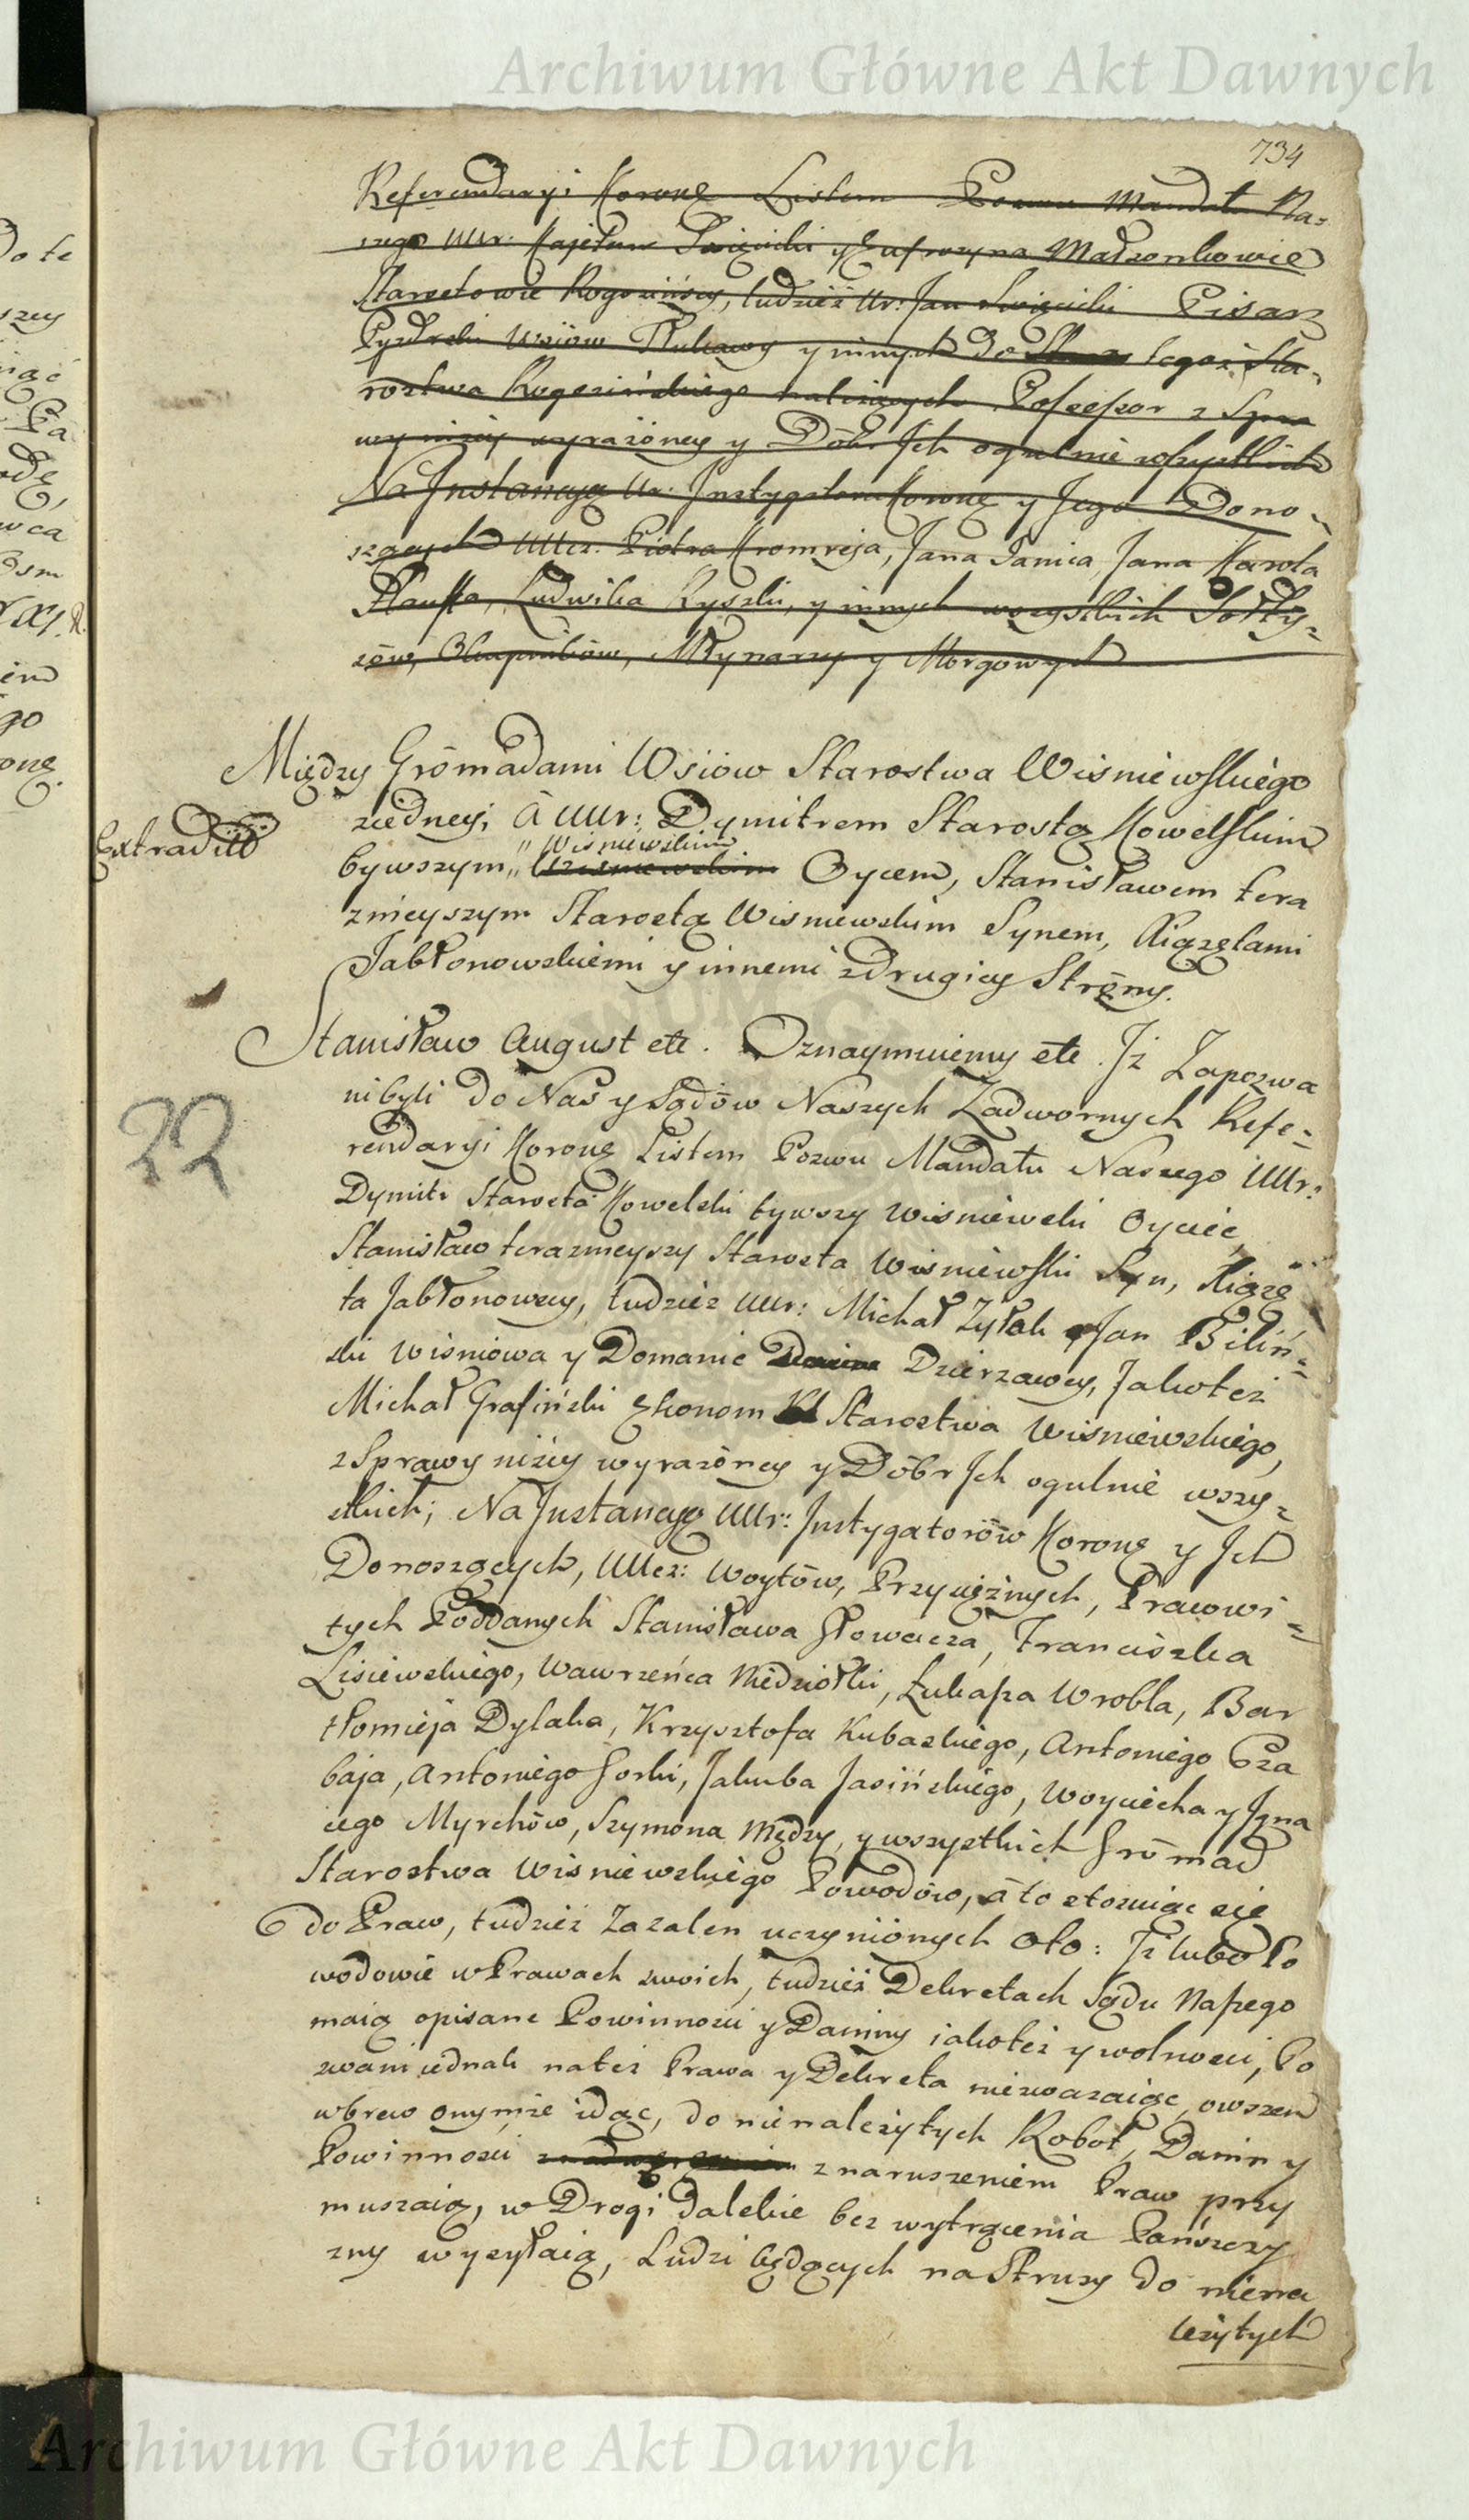 Archiwum Główne Akt Dawnych
734
Referendaryi Koroney Listem Pozwu Mandatu Na-
szego Urr: Kajetan Swięcicki y Eufrozyna Małżonkowie
Starostowie Rogozińscy, tudzież Ur: Jan Swięcicki Pisarz
Pyzdrski Wsiow y innych do tegoż Sta-
rostwa Rogozińskiego należących Possessor z Spra
wy niżey wyrażoney y Dóbr Ich ogulnie wszystkich
Na Instancyą Ur. Instygatora Koroneg y Jego Dono-
szących UUcz. Piotra Kromreja, Jana Janica, Jana Karola
Ludwika Ryszki, y innych wszystkich Sołty-
sów, Okupników, Młynarzy y Morgowych
Między Grómadami Wsiów Starostwa Wisniewskiego
ziedney, à UUr: Dymitrem Starostą Kowelskim
Extraditū
bywszym „ Wisniewskim Oycem, Stanisławem tera
znieyszym Starostą Wisniewskim Synem, Xiążętami
Jabłonowskiemi y innemi z drugiey Strony.
Stanisław August etc. Oznaymuiemy etc. Iż Zapozwa
22
ni byli do Nas y Sądów Naszych Zadwornych Refe-
rendaryi Koroney Listem Pozwu Mandatu Naszego UUr:
Dymitr Starosta Kowelski bywszy Wisniewski Oyciec,
Stanisław teraznieyszy Starosta Wisniewski Syn, Xiąźę
ta Jabłonowscy, tudzież UUr: Michał Zyłok y Jan Biliń-
ski Wisniowa y Domanic Dzierzawcy, Jakoteż
Michał Grafiński Ekonom Starostwa Wisniewskiego,
z Sprawy niżey wyrażoney y Dóbr Ich ogulnie wszy-
stkich; Na Instancyą UUr: Instygatorów Koroneg y Ich
Donoszących, UUcz: Woytów, Przysiężnych, Pracowi-
tych Poddanych Stanisława Głowacza, Franciszka
Lisiewskiego, Wawrzeńca Niedziołki, Łukasza Wrobla, Bar
tłomieja Dylaka, Krzysztofa Kubaskiego, Antoniego Cza
baja, Antoniego Gorki, Jakuba Jasińskiego, Woyciecha y Igna
cego Myrchów, Szymona Mędzy, y wszystkich Grómad
Starostwa Wisniewskiego Powodów, à to stosuiąc się
do Praw, tudzież Zazalen uczynionych oto: Iż lubo Po
wodowie w Prawach swoich, tudzież Dekretach Sądu Naszego
maią opisane Powinnosci y Daniny iakoteż y wolnosci, Po
zwani iednak na też Prawa y Dekreta niezwazaiąc, owszem
wbrew onymże idąc, do nienależytych Robot, Danin y
Powinnosci z naruszeniem Praw przy
muszaią, w Drogi dalekie bez wytrącenia Pańszczy
zny wysyłaią, Ludzi będących na Struży do niena
leżytych
Archiwum Główne Akt Dawnych